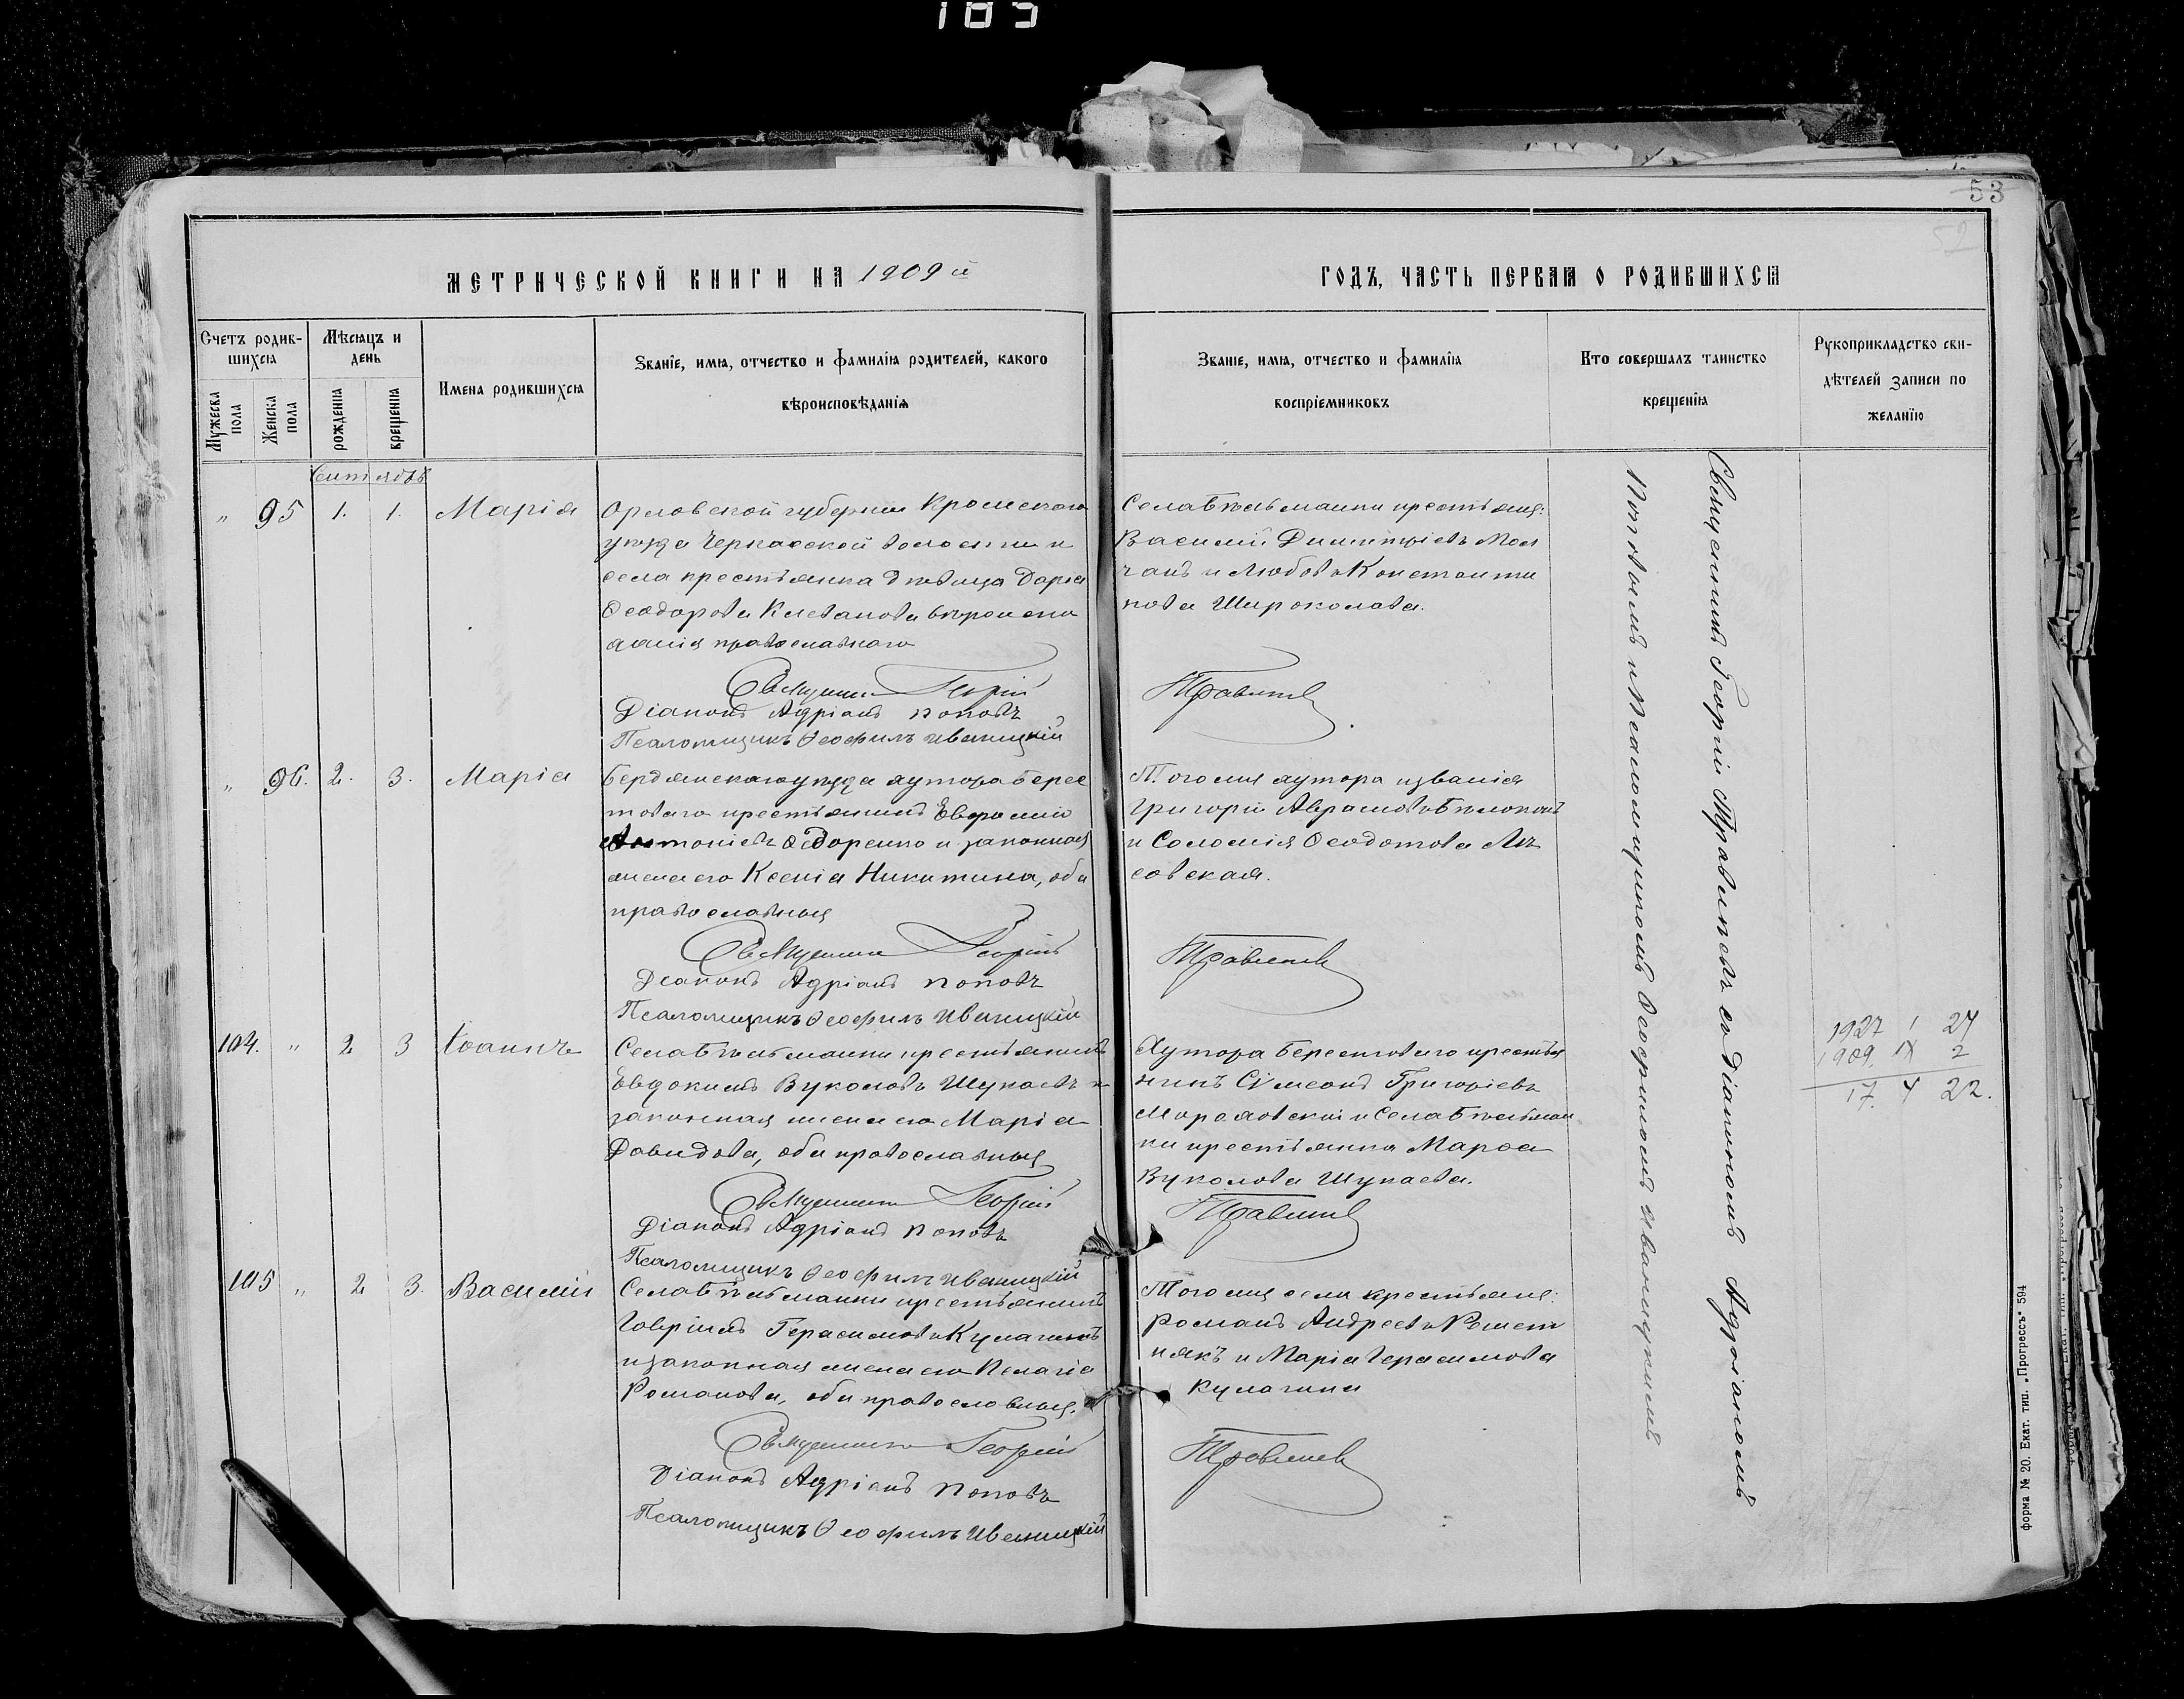 185
53
52
МЕТРИЧЕСКОЙ КНИГИ НА 1909 й
ГОДЪ, ЧАСТЬ ПЕРВАЯ О РОДИВШИХСЯ
Счетъ родив-
шихся
Мѣсяцъ и
день
Мужеска
пола
Женска
пола
рожденія
крещенія
Имена родившихся
Званіе, имя, отчество и фамилія родителей, какого
вѣроисповѣданія
Званіе, имя, отчество и фамилія
воспріемниковъ
Кто совершалъ таинство
крещенія
Рукоприкладство сви-
дѣтелей записи по
желанію
Сентябрь
" 95 1. 1. Марія
Орловской губерніи Кромского
уѣзда Черкасской волости и
села крестьянка дѣвица Дарія
Ѳеодорова вѣроиспо
данія православнаго
Священникъ Георгій
Діаконъ Адріанъ Поповъ
Псаломщикъ Ѳеофилъ Иваницкій
Села Бѣльманки крестьяне:
Василій Димитріевъ Мол
чанъ и Любовь Константи
нова Широколава.
" 96. 2. 3. Марія
Бердянскаго уѣзда хутора Берес
товаго крестьянинъ Евфимій
Антоніевъ Ѳедоренко и законная
жена его Ксенія Никитина, оба
православные
Священникъ Георгій
Діаконъ Адріанъ Поповъ
Псаломщикъ Ѳеофилъ Иваницкій
Того же хутора
Григорій Аврамовъ Бѣлоконь
и Соломія Ѳеодотова Лы
совская.
104. " 2 3 Іоаннъ
Села Бѣльманки крестьянинъ
Евдокимъ Вуколовъ Шупаевъ и
законная жена его Марія
Давидова, оба православные
Священникъ Георгій
Діаконъ Адріанъ Поповъ
Псаломщикъ Ѳеофилъ Иваницкій
Хутора Берестоваго крестья
нинъ Сѵмеонъ Григоріевъ
и села Бѣльман
ки крестьянка Марѳа
Вуколова Шупаева.
1927 1 24
1909. IX 2
17. 4 22.
105 " 2 3. Василій
Села Бѣльманки крестьянинъ
Гавріилъ Герасимовъ Кулагинъ
и законная жена его Пелагія
Романова, оба православные.
Священникъ Георгій
Діаконъ Адріанъ Поповъ
Псаломщикъ Ѳеофилъ Иваницкій
Того же села крестьяне:
Романъ Андреевъ Решет
някъ и Марія Герасимова
Кулагина
Священникъ Георгій съ Діакономъ Адріаномъ
Поповымъ и Псаломщикомъ Ѳеофиломъ Иваницкимъ
форма № 20. Екат. тип. „Прогрессъ" 594